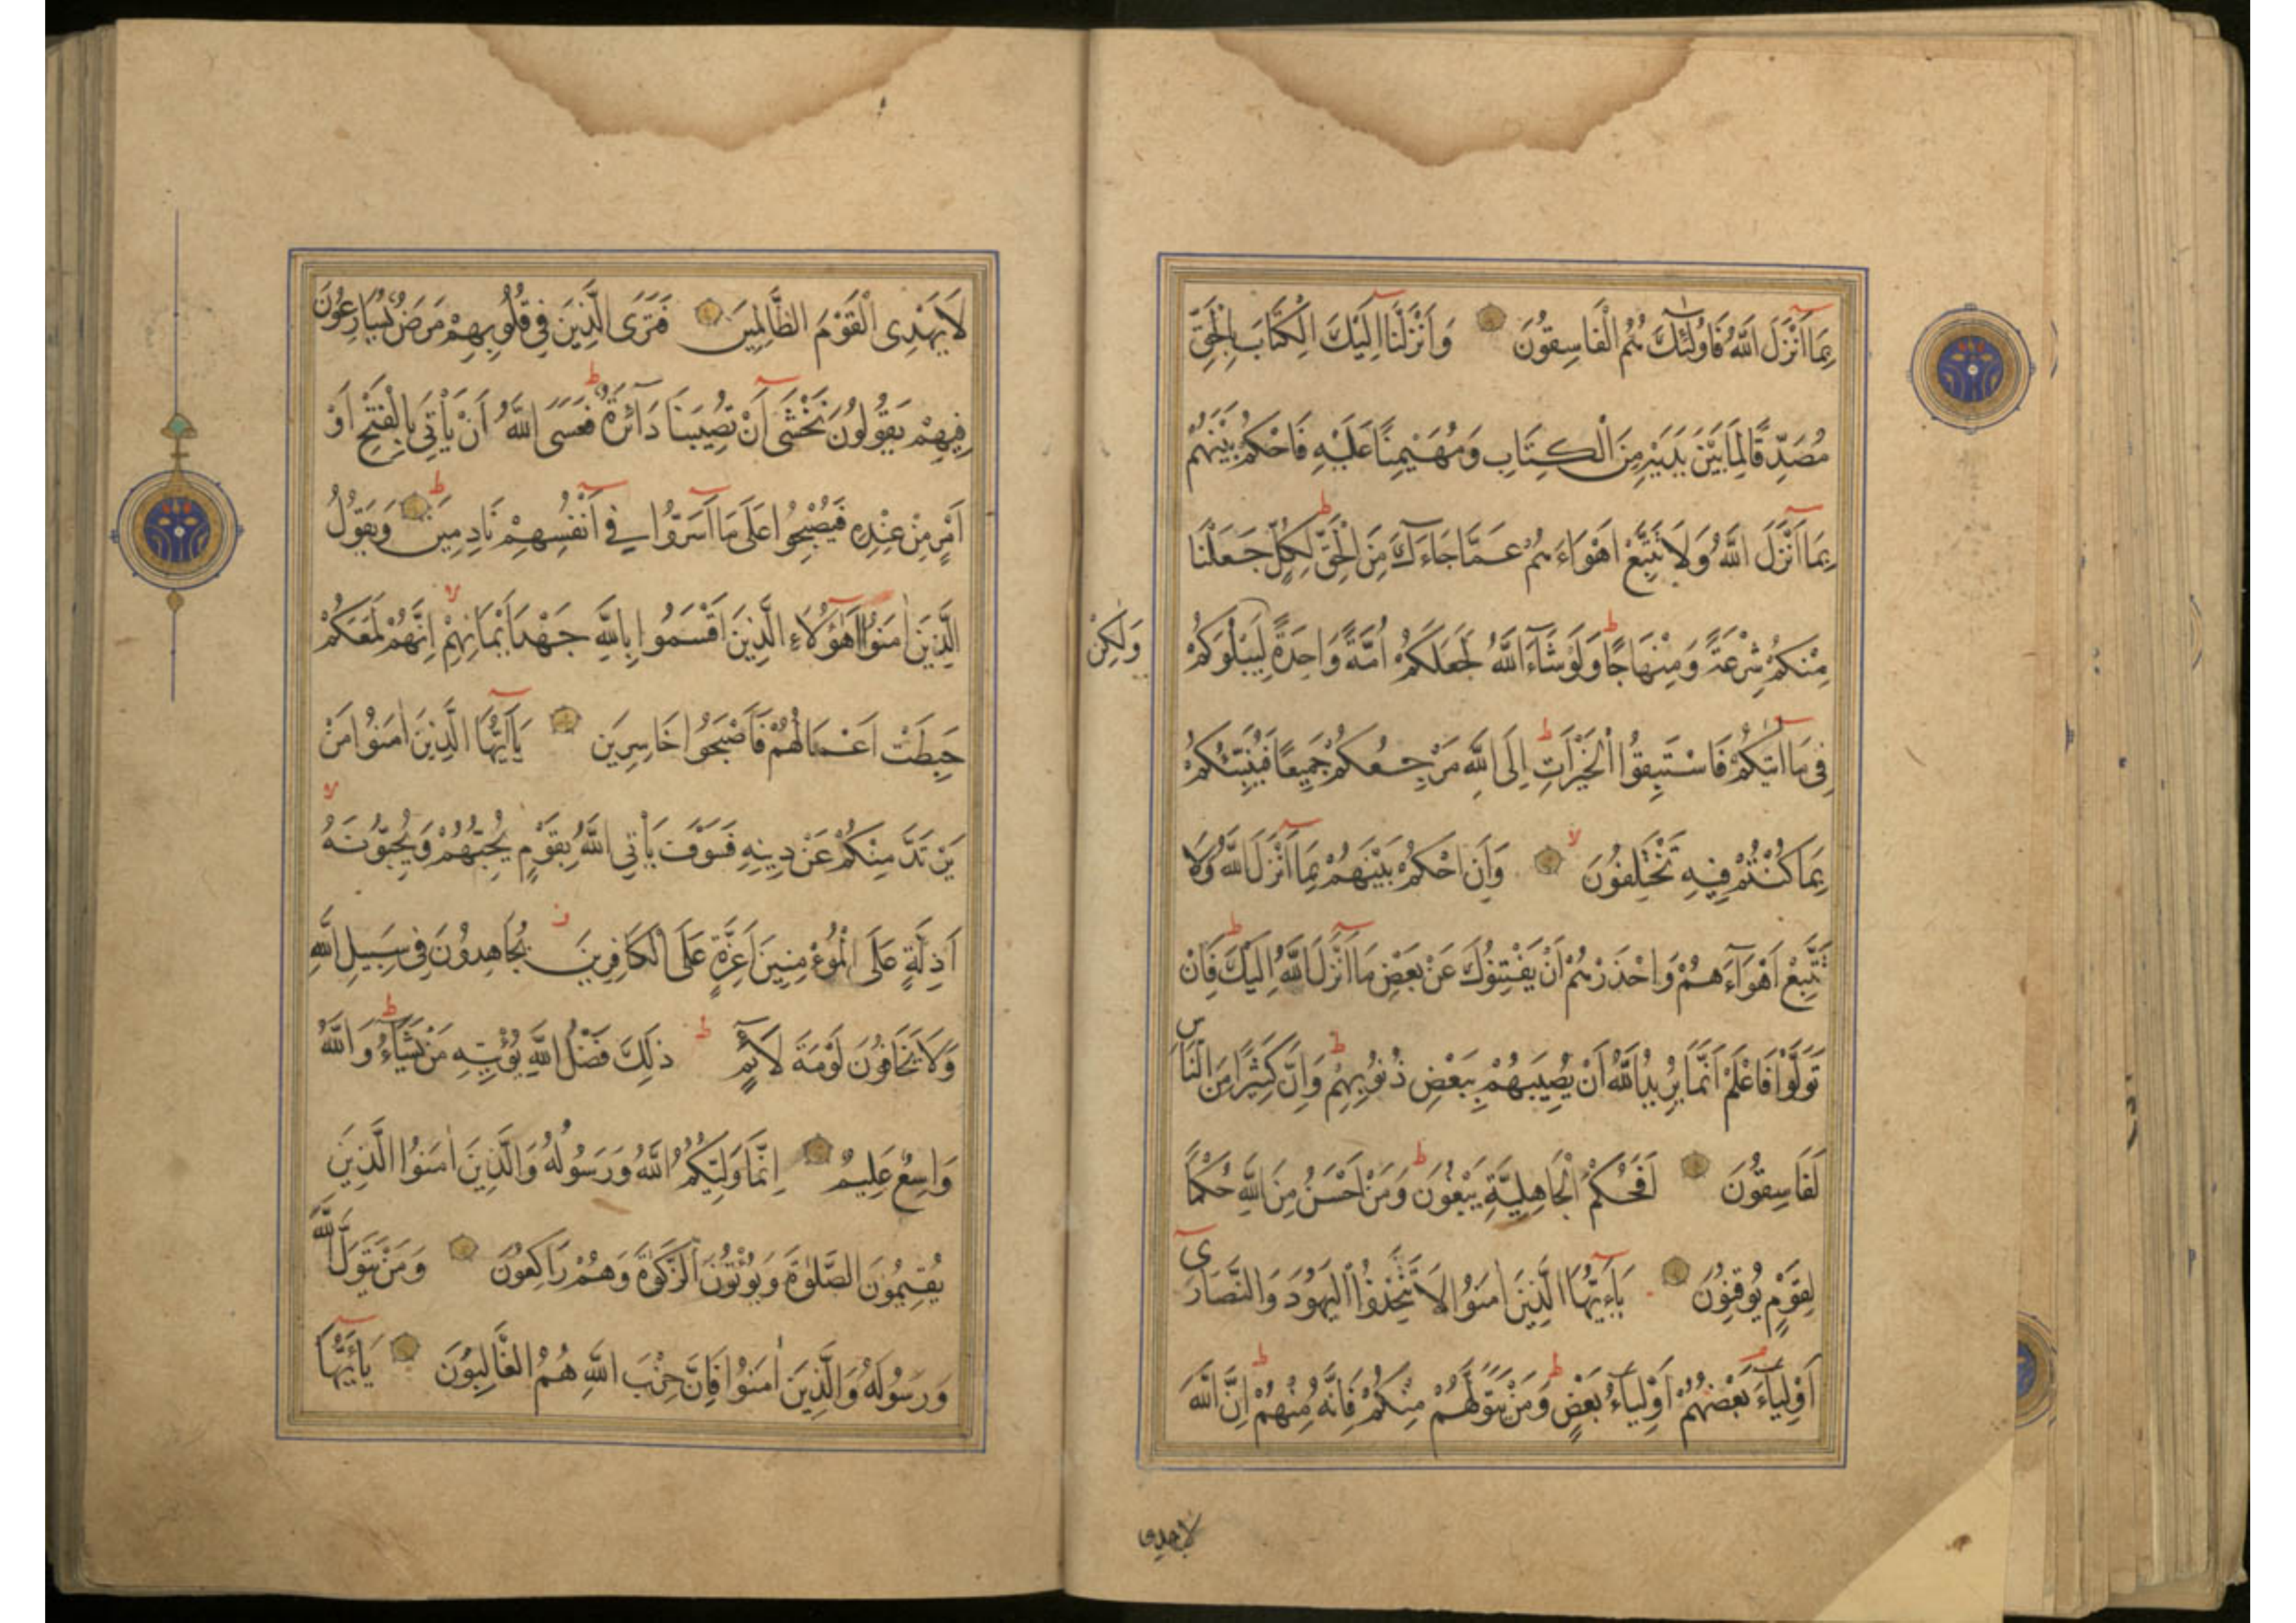 بِمَا اَنْزَلَ اللّٰهُ فَاُولٰئِكَ هُمُ الْفَاسِقُونَ وَاَنْزَلْنَا اِلَيْكَ الْكِتَابَ بِالْحَقِّ
مُصَدِّقًا لِمَا بَيْنَ يَدَيْهِ مِنَ الْكِتَابِ وَمُهَيْمِنًا عَلَيْهِ فَاحْكُمْ بَيْنَهُمْ
بِمَا اَنْزَلَ اللّٰهُ وَلَا تَتَّبِعْ اَهْوَاءَهُمْ عَمَّا جَاءَكَ مِنَ الْحَقِّ لِكُلٍّ جَعَلْنَا
مِنْكُمْ شِرْعَةً وَمِنْهَاجًا وَلَوْ شَاءَ اللّٰهُ لَجَعَلَكُمْ اُمَّةً وَاحِدَةً لِيَبْلُوَكُمْ
وَلٰكِنْ
فِي مَا اٰتٰيكُمْ فَاسْتَبِقُوا الْخَيْرَاتِ اِلَى اللّٰهِ مَرْجِعُكُمْ جَمِيعًا فَيُنَبِّئُكُمْ
بِمَا كُنْتُمْ فِيهِ تَخْتَلِفُونَ وَاَنِ احْكُمْ بَيْنَهُمْ بِمَا اَنْزَلَ اللّٰهُ وَلَا
تَتَّبِعْ اَهْوَاءَهُمْ وَاحْذَرْهُمْ اَنْ يَفْتِنُوكَ عَنْ بَعْضِ مَا اَنْزَلَ اللّٰهُ اِلَيْكَ فَاِنْ
تَوَلَّوْا فَاعْلَمْ اَنَّمَا يُرِيدُ اللّٰهُ اَنْ يُصِيبَهُمْ بِبَعْضِ ذُنُوبِهِمْ وَاِنَّ كَثِيرًا مِنَ النَّاسِ
لَفَاسِقُونَ اَفَحُكْمَ الْجَاهِلِيَّةِ يَبْغُونَ وَمَنْ اَحْسَنُ مِنَ اللّٰهِ حُكْمًا
لِقَوْمٍ يُوقِنُونَ يَاءَيُّهَا الَّذِينَ اٰمَنُوا لَا تَتَّخِذُوا الْيَهُودَ وَالنَّصَارَى
اَوْلِيَاءَ بَعْضُهُمْ اَوْلِيَاءُ بَعْضٍ وَمَنْ يَتَوَلَّهُمْ مِنْكُمْ فَاِنَّهُ مِنْهُمْ اِنَّ اللّٰهَ
لا يهدى
لَا يَهْدِى الْقَوْمَ الظَّالِمِينَ فَتَرَى الَّذِينَ فِي قُلُوبِهِمْ مَرَضٌ يُسَارِعُونَ
فِيهِمْ يَقُولُونَ نَخْشَى اَنْ تُصِيبَنَا دَائِرَةٌ فَعَسَى اللّٰهُ اَنْ يَأْتِيَ بِالْفَتْحِ اَوْ
اَمْرٍ مِنْ عِنْدِهِ فَيُصْبِحُوا عَلَى مَا اَسَرُّوا فِي اَنْفُسِهِمْ نَادِمِينَ وَيَقُولُ
الَّذِينَ اٰمَنُوا اَهٰؤُلَاءِ الَّذِينَ اَقْسَمُوا بِاللّٰهِ جَهْدَ اَيْمَانِهِمْ اِنَّهُمْ لَمَعَكُمْ
حَبِطَتْ اَعْمَالُهُمْ فَاَصْبَحُوا خَاسِرِينَ يَااَيُّهَا الَّذِينَ اٰمَنُوا مَنْ
يَرْتَدَّ مِنْكُمْ عَنْ دِينِهِ فَسَوْفَ يَأْتِي اللّٰهُ بِقَوْمٍ يُحِبُّهُمْ وَيُحِبُّونَهُ
اَذِلَّةٍ عَلَى الْمُؤْمِنِينَ اَعِزَّةٍ عَلَى الْكَافِرِينَ يُجَاهِدُونَ فِي سَبِيلِ اللّٰهِ
وَلَا يَخَافُونَ لَوْمَةَ لَائِمٍ ذٰلِكَ فَضْلُ اللّٰهِ يُؤْتِيهِ مَنْ يَشَاءُ وَاللّٰهُ
وَاسِعٌ عَلِيمٌ اِنَّمَا وَلِيُّكُمُ اللّٰهُ وَرَسُولُهُ وَالَّذِينَ اٰمَنُوا الَّذِينَ
يُقِيمُونَ الصَّلٰوةَ وَيُؤْتُونَ الزَّكٰوةَ وَهُمْ رَاكِعُونَ وَمَنْ يَتَوَلَّ اللّٰهَ
وَرَسُولَهُ وَالَّذِينَ اٰمَنُوا فَاِنَّ حِزْبَ اللّٰهِ هُمُ الْغَالِبُونَ يَااَيُّهَا